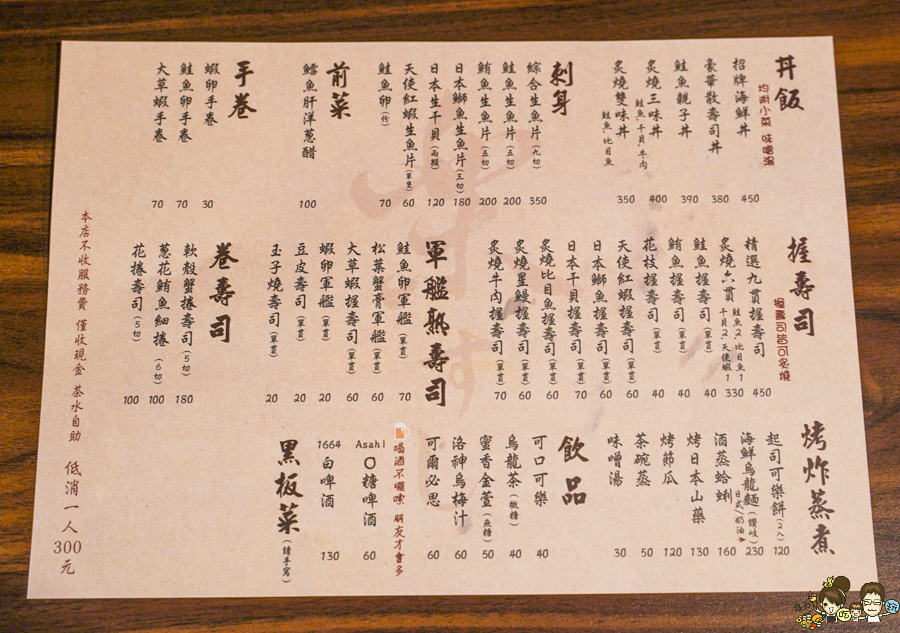 丼飯
均附小菜 味噌湯
招牌海鮮丼 450
豪華散壽司丼 380
鮭魚親子丼 390
炙燒三味丼 鮭魚、干貝、牛肉 400
炙燒雙味丼 鮭魚、比目魚 350
刺身
綜合生魚片(九切) 350
鮭魚生魚片(五切) 200
鮪魚生魚片(五切) 200
日本鰤魚生魚片(三切) 180
日本生干貝(兩顆) 120
天使紅蝦生魚片(單隻) 60
鮭魚卵(份) 70
前菜
鱈魚肝洋蔥醋 100
手卷
蝦卵手卷 30
鮭魚卵手卷 70
大草蝦手卷 70
握壽司
握壽司皆可炙燒
精選九貫握壽司 450
炙燒六貫 鮭魚2、比目魚1 干貝2、天使蝦1 330
鮭魚握壽司(單貫) 40
鮪魚握壽司(單貫) 40
花枝握壽司(單貫) 40
天使紅蝦握壽司(單貫) 60
日本鰤魚握壽司(單貫) 60
日本干貝握壽司(單貫) 70
炙燒比目魚握壽司(單貫) 60
炙燒星鰻握壽司(單貫) 60
炙燒牛肉握壽司(單貫) 70
軍艦熟壽司
鮭魚卵軍艦(單貫) 70
松葉蟹膏軍艦(單貫) 60
大草蝦握壽司(單貫) 60
蝦卵軍艦(單貫) 20
豆皮壽司(單貫) 20
玉子燒壽司(單貫) 20
卷壽司
軟殼蟹捲壽司(5切) 180
蔥花鮪魚細捲(6切) 100
花捲壽司(5切) 100
烤炸蒸煮
起司可樂餅(2入) 120
海鮮烏龍麵(讚岐) 日式/奶油 230
酒蒸蛤蜊 160
烤日本山藥 130
烤節瓜 120
茶碗蒸 50
味噌湯 30
飲品
可口可樂 40
烏龍茶(微糖) 40
蜜香金萱(無糖) 50
洛神烏梅汁 60
可爾必思 60
喝酒不囉嗦 朋友才會多
Asahi 0糖啤酒 60
1664 白啤酒 130
黑板菜(請手寫)
本店不收服務費 僅收現金 茶水自助 低消一人300元